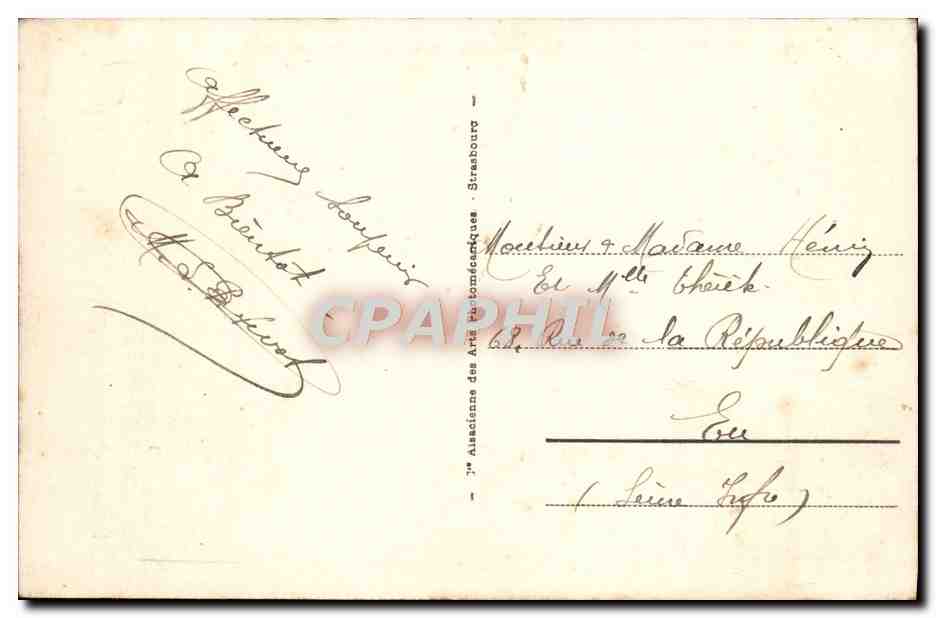 affectueux souvenir
a Bientot
— Cie Alsacienne des Arts Photomécaniques - Strasbourg —
Monsieur & Madame Héniz
Et Mlle
68, Rue de la République
Eu
(Seine Infre)
CPAPHIL